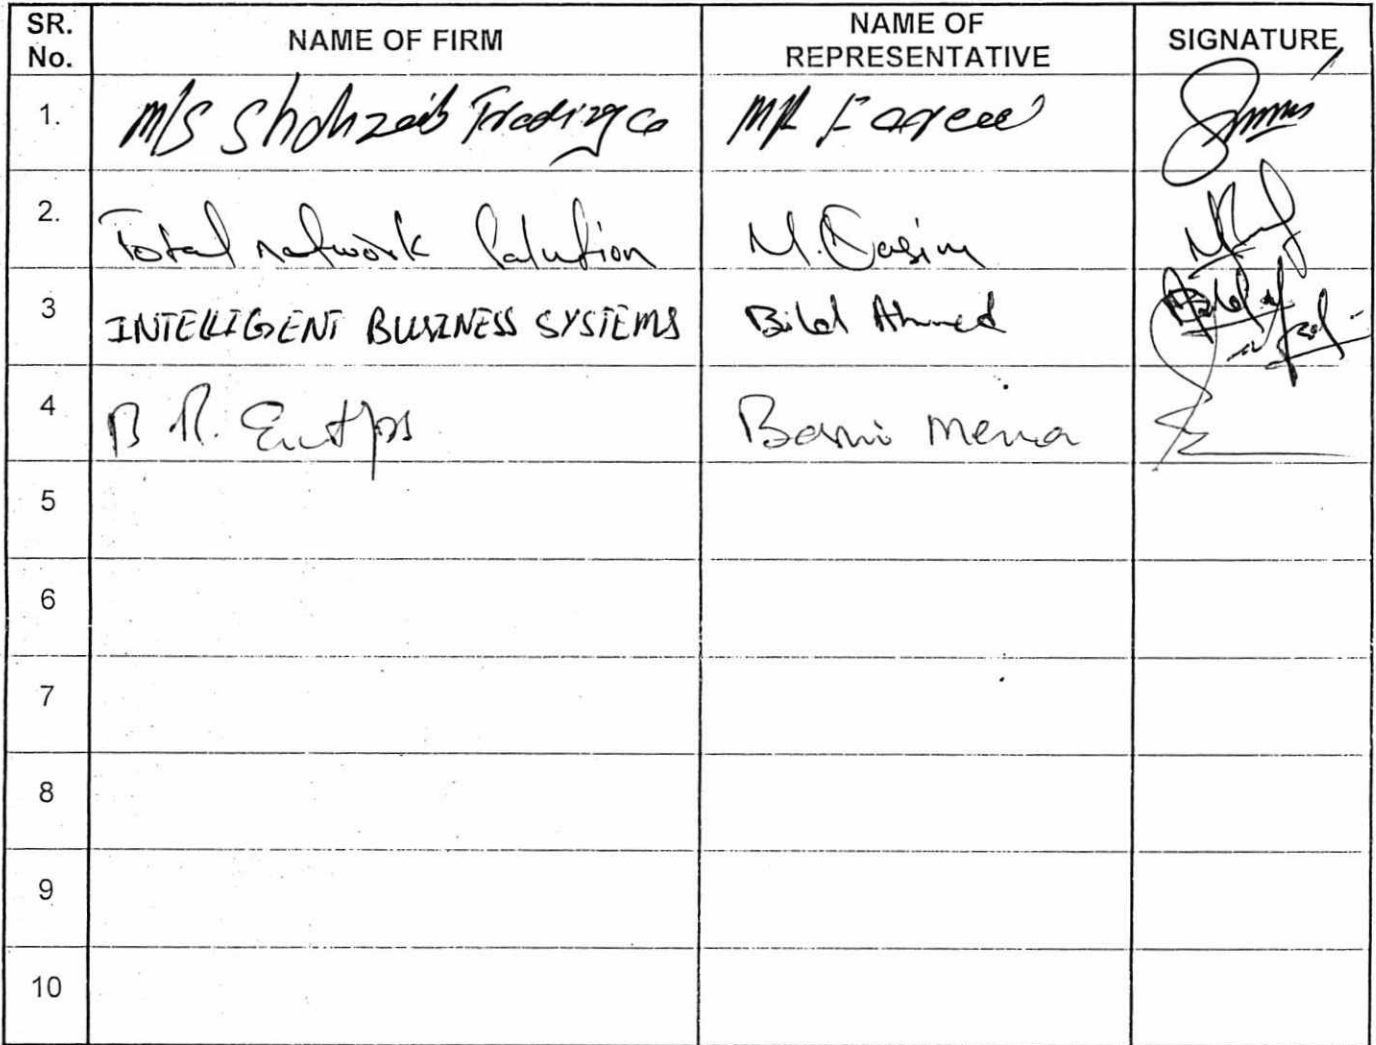 SR. No. NAME OF FIRM NAME OF REPRESENTATIVE SIGNATURE
1. M/S Shahzaib Trading Co MR
2. Total network Solution M. Qasim
3 INTELLIGENT BUSINESS SYSTEMS Bilal Ahmed
4 B R.
5
6
7
8
9
10